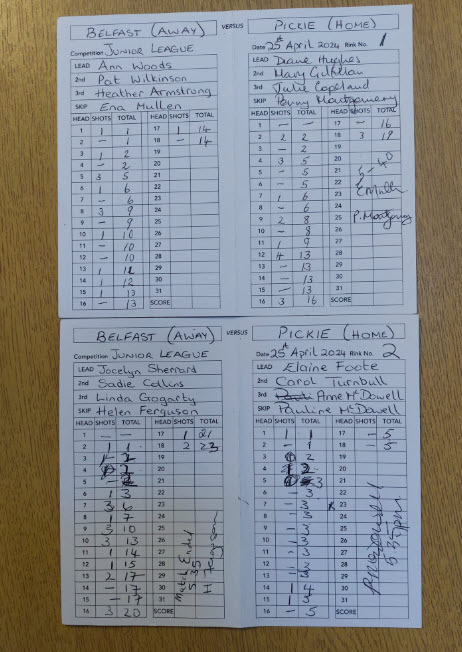 BELFAST (AWAY) VERSUS PICKIE (HOME)
Competition JUNIOR LEAGUE Date 25th April 2024 Rink No. 1
LEAD Ann Woods LEAD Diane Hughes
2nd Pat Wilkinson 2nd Mary Gilfillan
3rd Heather Armstrong 3rd Julie Copeland
SKIP Ena Mullen SKIP Penny Montgomery
HEAD SHOTS TOTAL HEAD SHOTS TOTAL HEAD SHOTS TOTAL HEAD SHOTS TOTAL
1 1 1 17 1 14 1 – – 17 – 16
2 – 1 18 – 14 2 2 2 18 3 19
3 1 2 19 3 – 2 19
4 – 2 20 4 3 5 20
5 3 5 21 5 – 5 21
6 1 6 22 6 – 5 22
7 – 6 23 7 1 6 23
8 3 9 24 8 – 6 24
9 – 9 25 9 2 8 25 P. Montgomery
10 1 10 26 10 – 8 26
11 – 10 27 11 1 9 27
12 – 10 28 12 4 13 28
13 1 11 29 13 – 13 29
14 1 12 30 14 – 13 30
15 1 13 31 15 – 13 31
16 – 13 SCORE 16 3 16 SCORE
BELFAST (AWAY) VERSUS PICKIE (HOME)
Competition JUNIOR LEAGUE Date 25th April 2024 Rink No. 2
LEAD Jocelyn Sherrard LEAD Elaine Foote
2nd Sadie Collins 2nd Carol Turnbull
3rd Linda Grogarty 3rd Anne McDowell
SKIP Helen Ferguson SKIP Pauline McDowell
HEAD SHOTS TOTAL HEAD SHOTS TOTAL HEAD SHOTS TOTAL HEAD SHOTS TOTAL
1 – – 17 1 21 1 1 1 17 – 5
2 1 1 18 2 23 2 – 1 18 – 5
3 19 3 2 19
4 20 4 20
5 21 5 3 21
6 1 3 22 6 – 3 22
7 3 6 23 7 – 3 23
8 1 7 24 8 – 3 24
9 3 10 25 9 – 3 25
10 3 13 26 10 – 3 26
11 1 14 27 11 – 3 27
12 1 15 28 12 – 3 28
13 2 17 29 13 – 3 29
14 – 17 30 14 1 4 30
15 – 17 31 15 1 5 31
16 3 20 SCORE 16 – 5 SCORE
Match Ended
5.35
H Ferguson
5.35pm